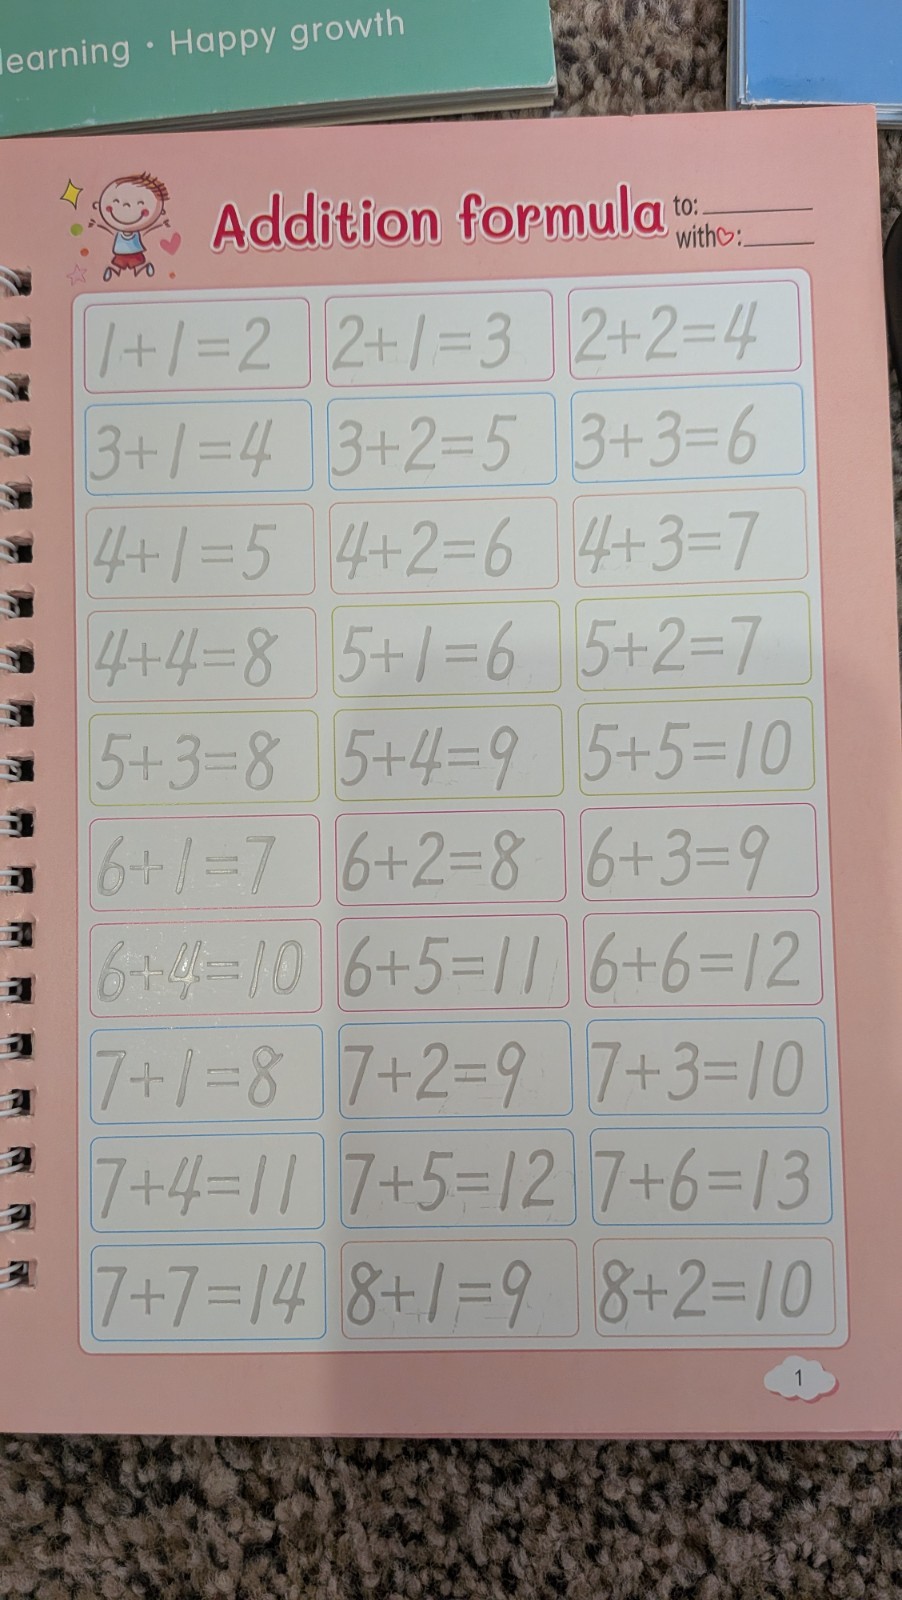 learning · Happy growth
Addition formula
to:
with♡:
1+1=2 2+1=3 2+2=4
3+1=4 3+2=5 3+3=6
4+1=5 4+2=6 4+3=7
4+4=8 5+1=6 5+2=7
5+3=8 5+4=9 5+5=10
6+1=7 6+2=8 6+3=9
6+4=10 6+5=11 6+6=12
7+1=8 7+2=9 7+3=10
7+4=11 7+5=12 7+6=13
7+7=14 8+1=9 8+2=10
1